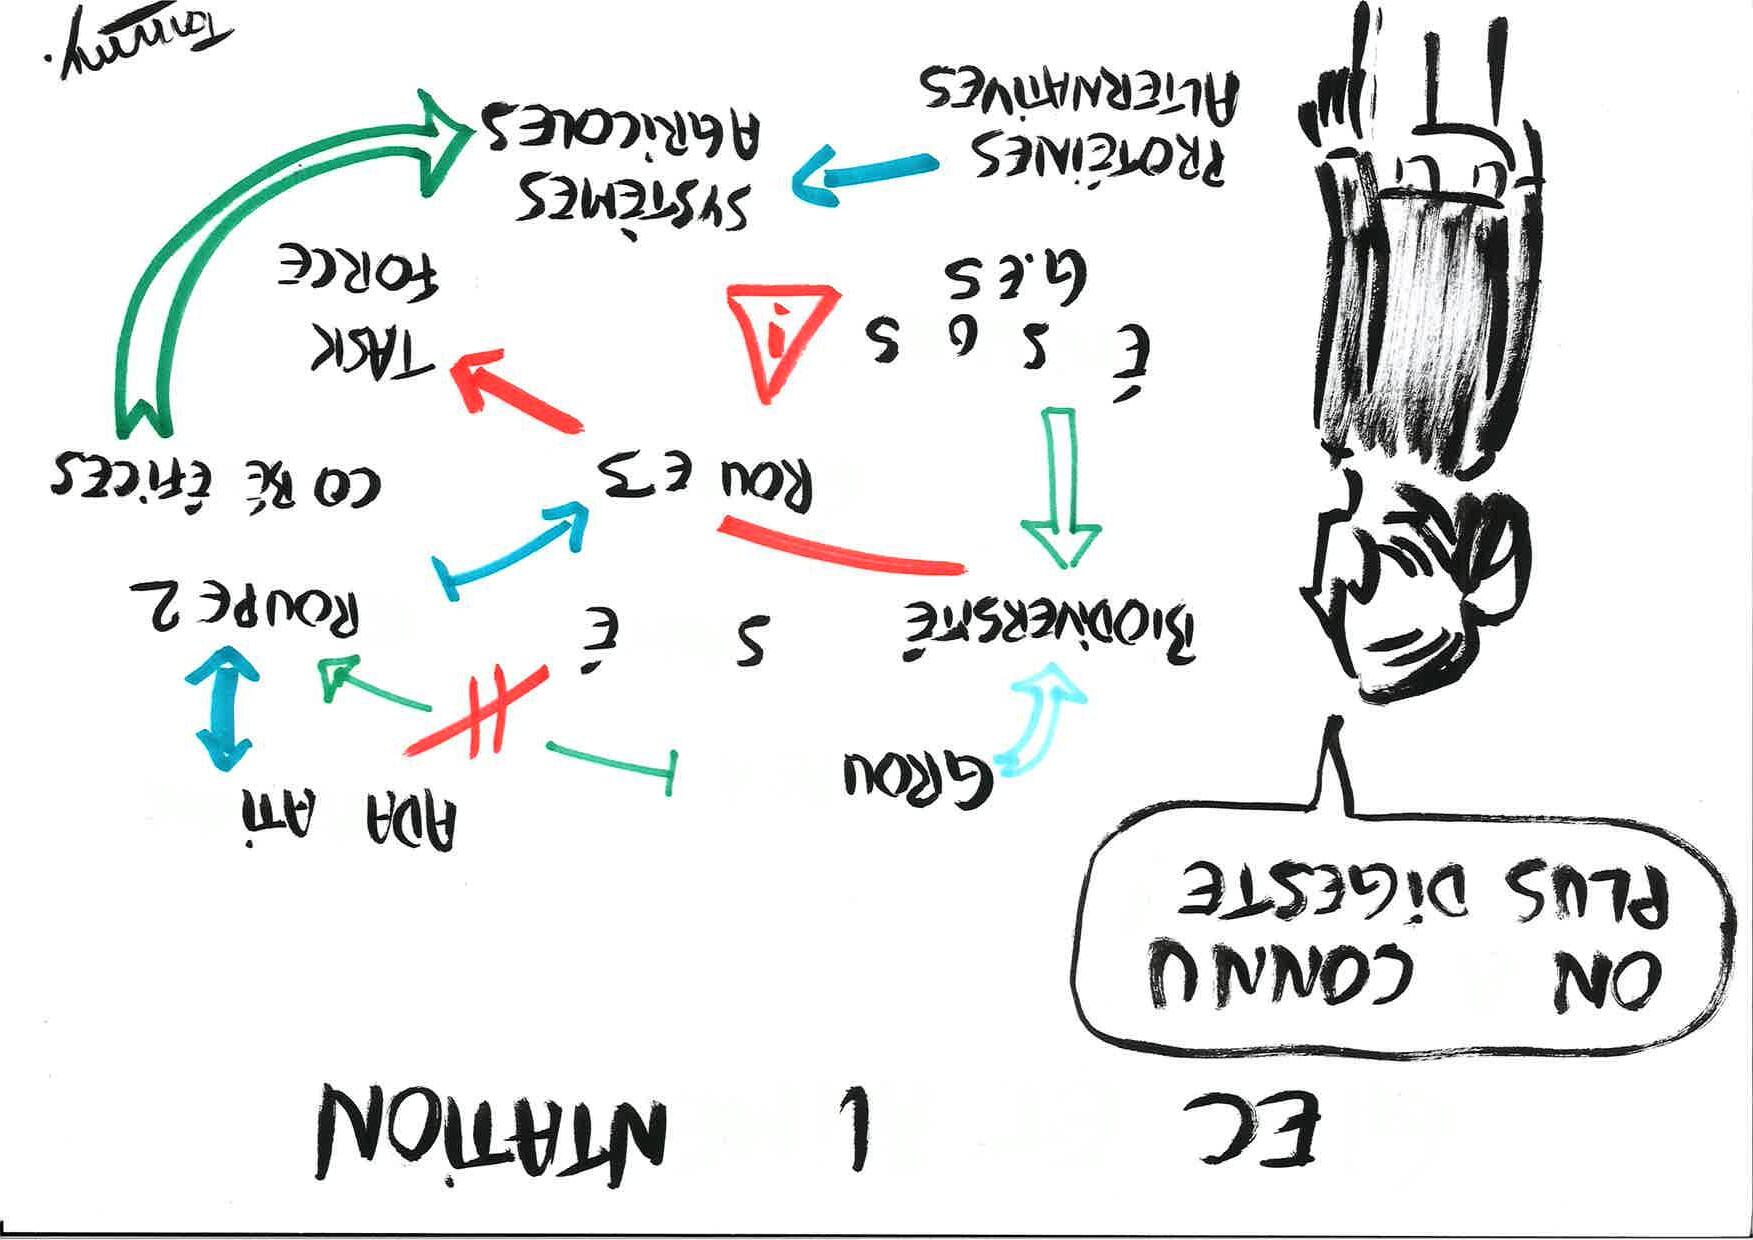 EC L NTATION
ON CONNU
PLUS DIGESTE
GROU
ADA ATI
BIODIVERSITÉ
S É
ROUPE 2
ROU E 3
CO BÉ ÉFICES
É S G S
G.E.S
!
TASK
FORCE
PROTÉINES
ALTERNATIVES
SYSTÈMES
AGRICOLES
Tommy.